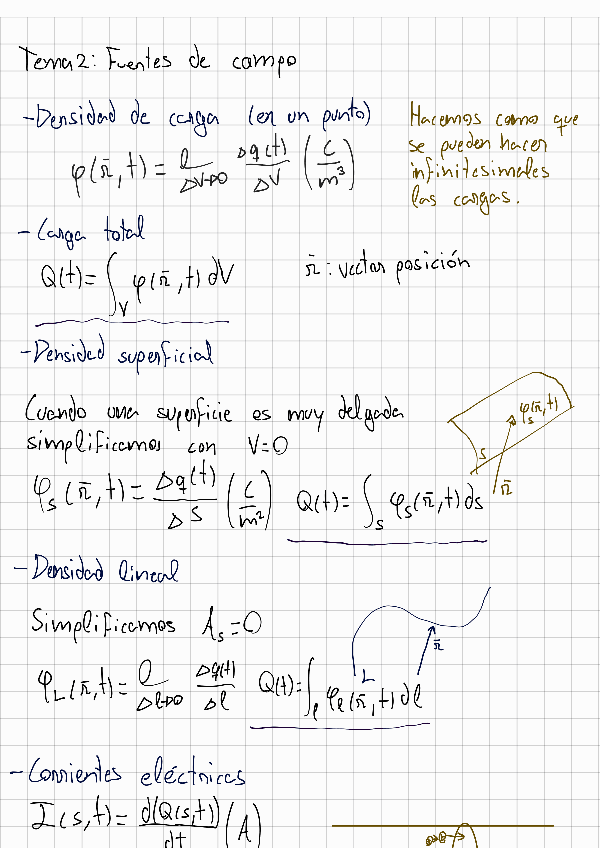 Tema 2: Fuentes de campo
- Densidad de carga (en un punto)
φ(r̄,t) = l_{ΔV→0} Δq(t)/ΔV (C/m³)
Hacemos como que
se pueden hacer
infinitesimales
las cargas.
- Carga total
Q(t) = ∫_V φ(r̄,t) dV
r̄: vector posición
- Densidad superficial
Cuando una superficie es muy delgada
simplificamos con V=0
φ_s(r̄,t) = Δq(t)/ΔS (C/m²)
Q(t) = ∫_s φ_s(r̄,t) ds
φ_s(r̄,t)
s
r̄
- Densidad lineal
Simplificamos A_s=0
φ_L(r̄,t) = l_{Δl→0} Δq(t)/Δl
Q(t) = ∫_l φ_l(r̄,t) dl
L
r̄
- Corrientes eléctricas
I(s,t) = d(Q(s,t))/dt (A)